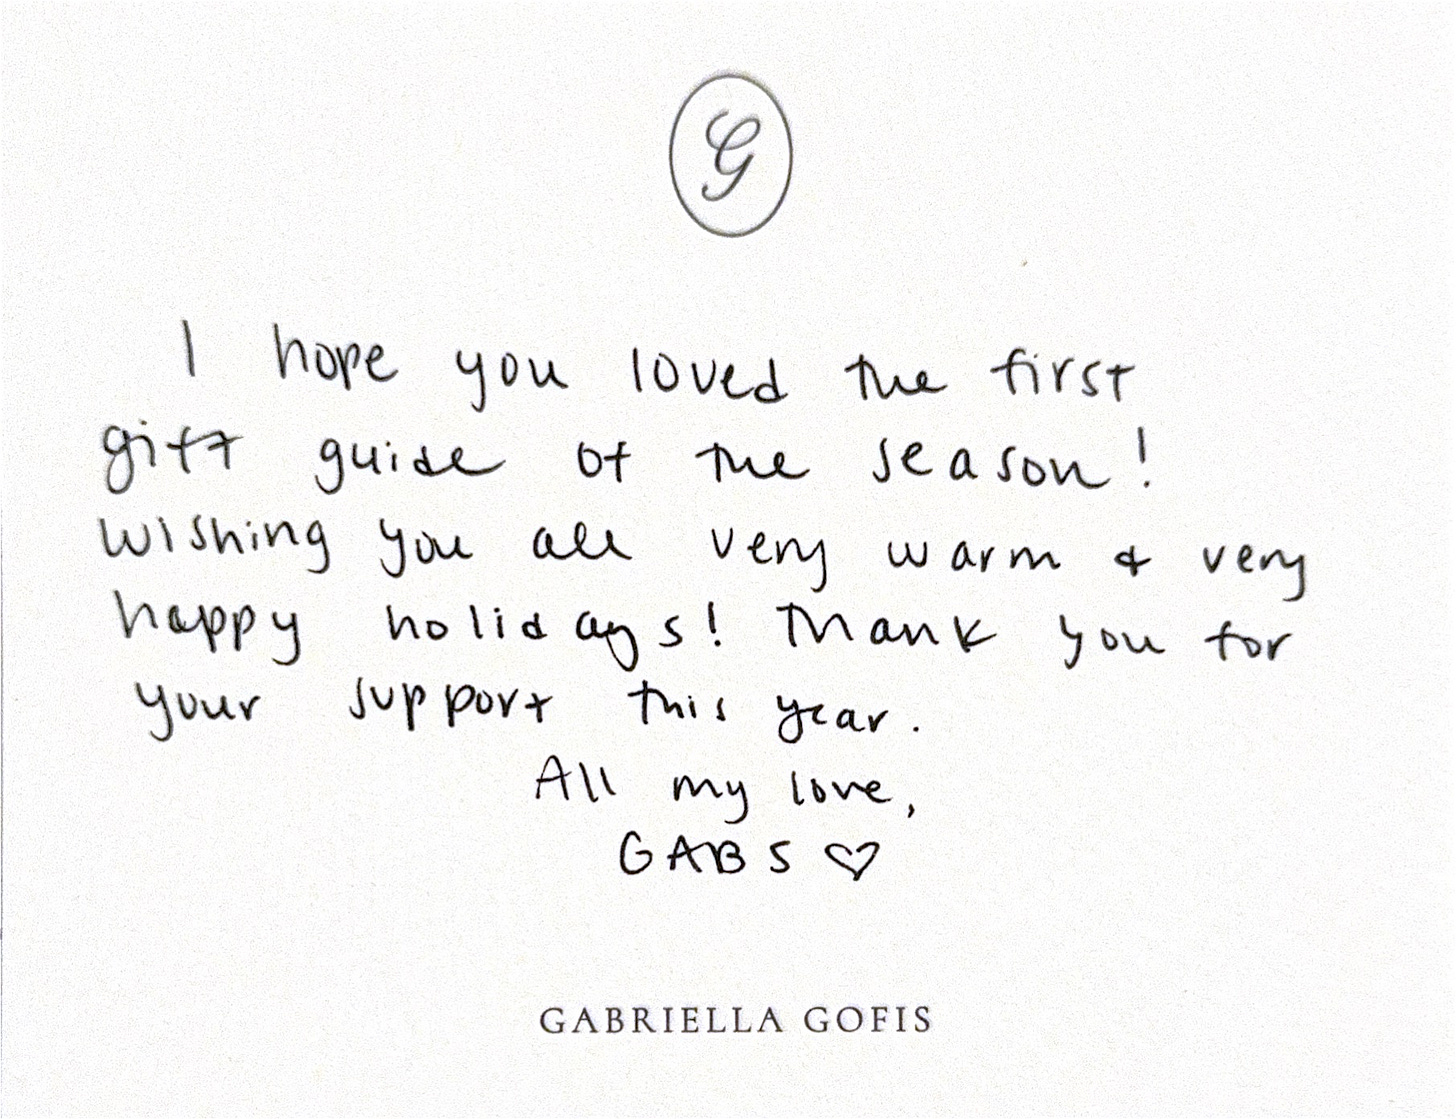 G
I hope you loved the first
gift guide of the season!
Wishing you all very warm & very
happy holidays! Thank you for
your support this year.
All my love,
GABS ♡
GABRIELLA GOFIS